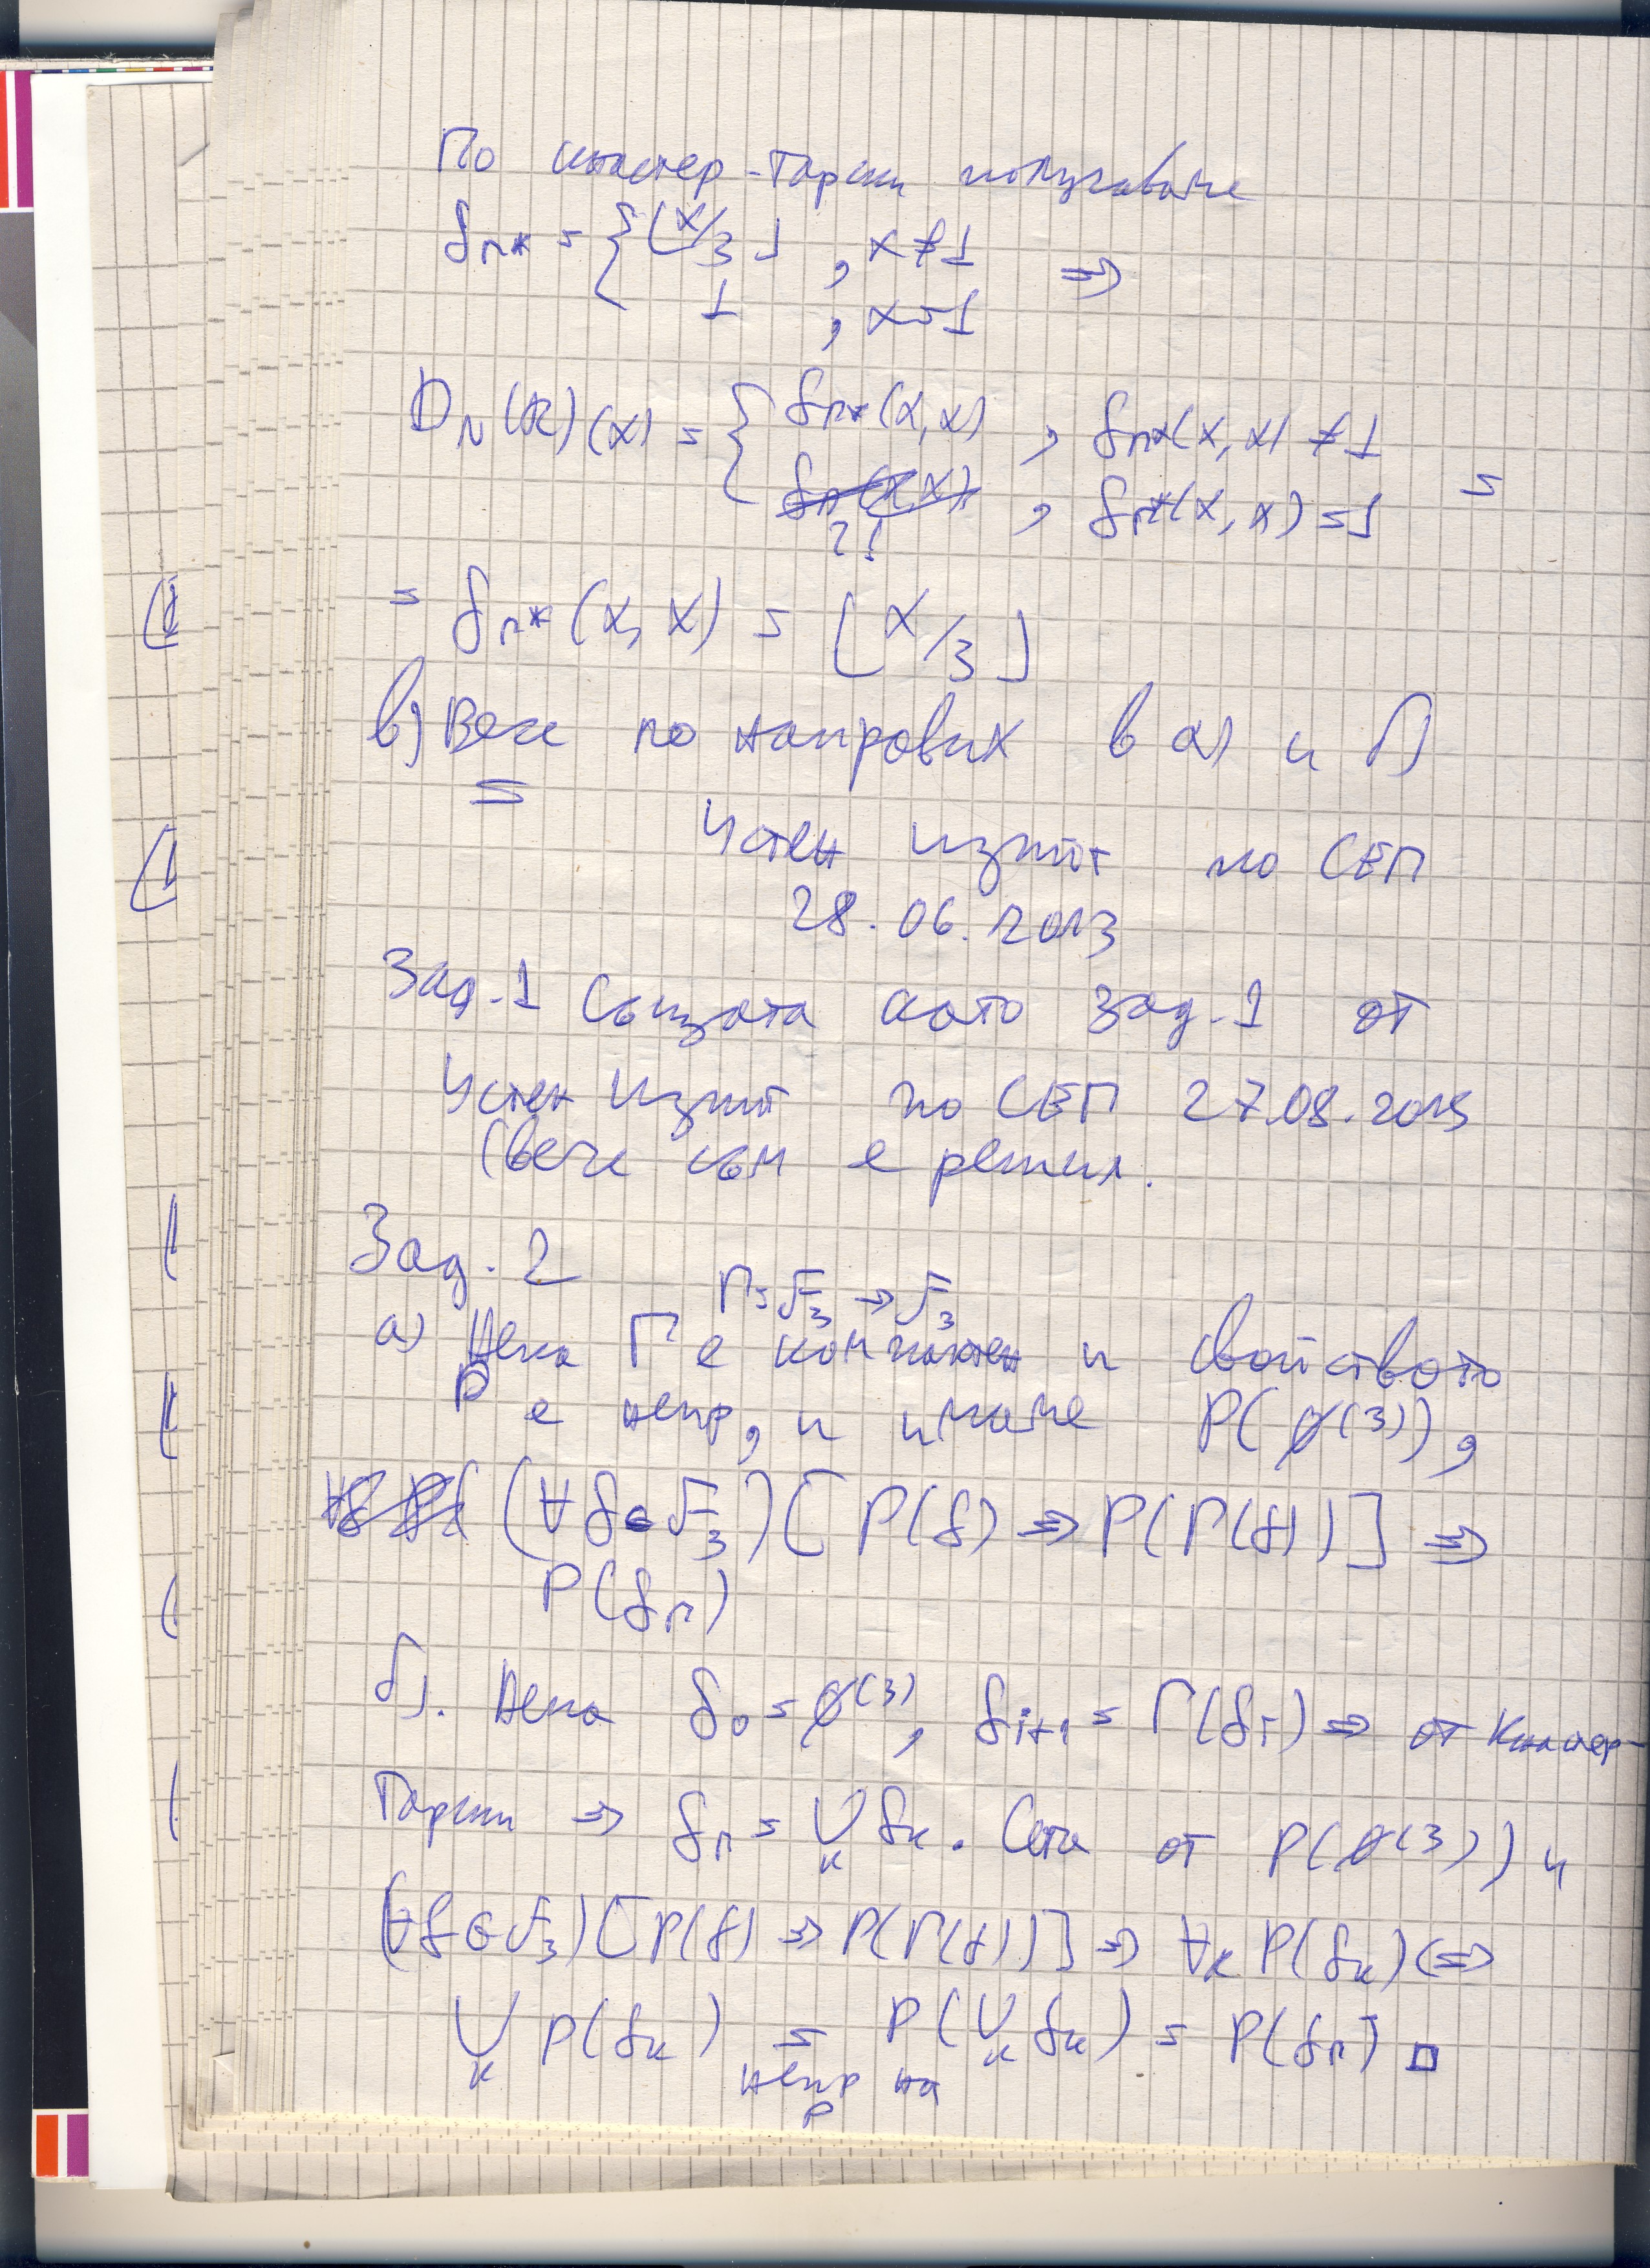 По Кнастер-Тарски получаваме
f_Γ* = { ⌊x/3⌋ , x≠1 ⇒
1 , x=1
D_N(R)(x) = { f_Γ*(x,x) , f_Γ*(x,x) ≠ 1
f_Γ*(x,x) , f_Γ*(x,x) = 1 =
?!
= f_Γ*(x, x) = ⌊x/3⌋
в) Вече го направих в а) и б)
Устен изпит по СЕП
28.06.2013
Зад.1 Същата като зад.1 от
Устен изпит по СЕП 27.08.2015
(вече съм е решил.
Зад. 2
Γ: F₃ → F₃
а) Нека Γ е компактен и свойството
P е непр, и имаме P(∅⁽³⁾),
(∀f∈F₃)[P(f) ⇒ P(Γ(f))] ⇒
P(f_Γ)
б). Нека f₀ = ∅⁽³⁾, f_{i+1} = Γ(f_i) ⇒ от Кнастер-
Тарски ⇒ f_Γ = ∪_k f_k. Сега от P(∅⁽³⁾) и
(∀f∈F₃)[P(f) ⇒ P(Γ(f))] ⇒ ∀_k P(f_k) ⇔
∪_k P(f_k) = P(∪_k f_k) = P(f_Γ) □
непр на
P